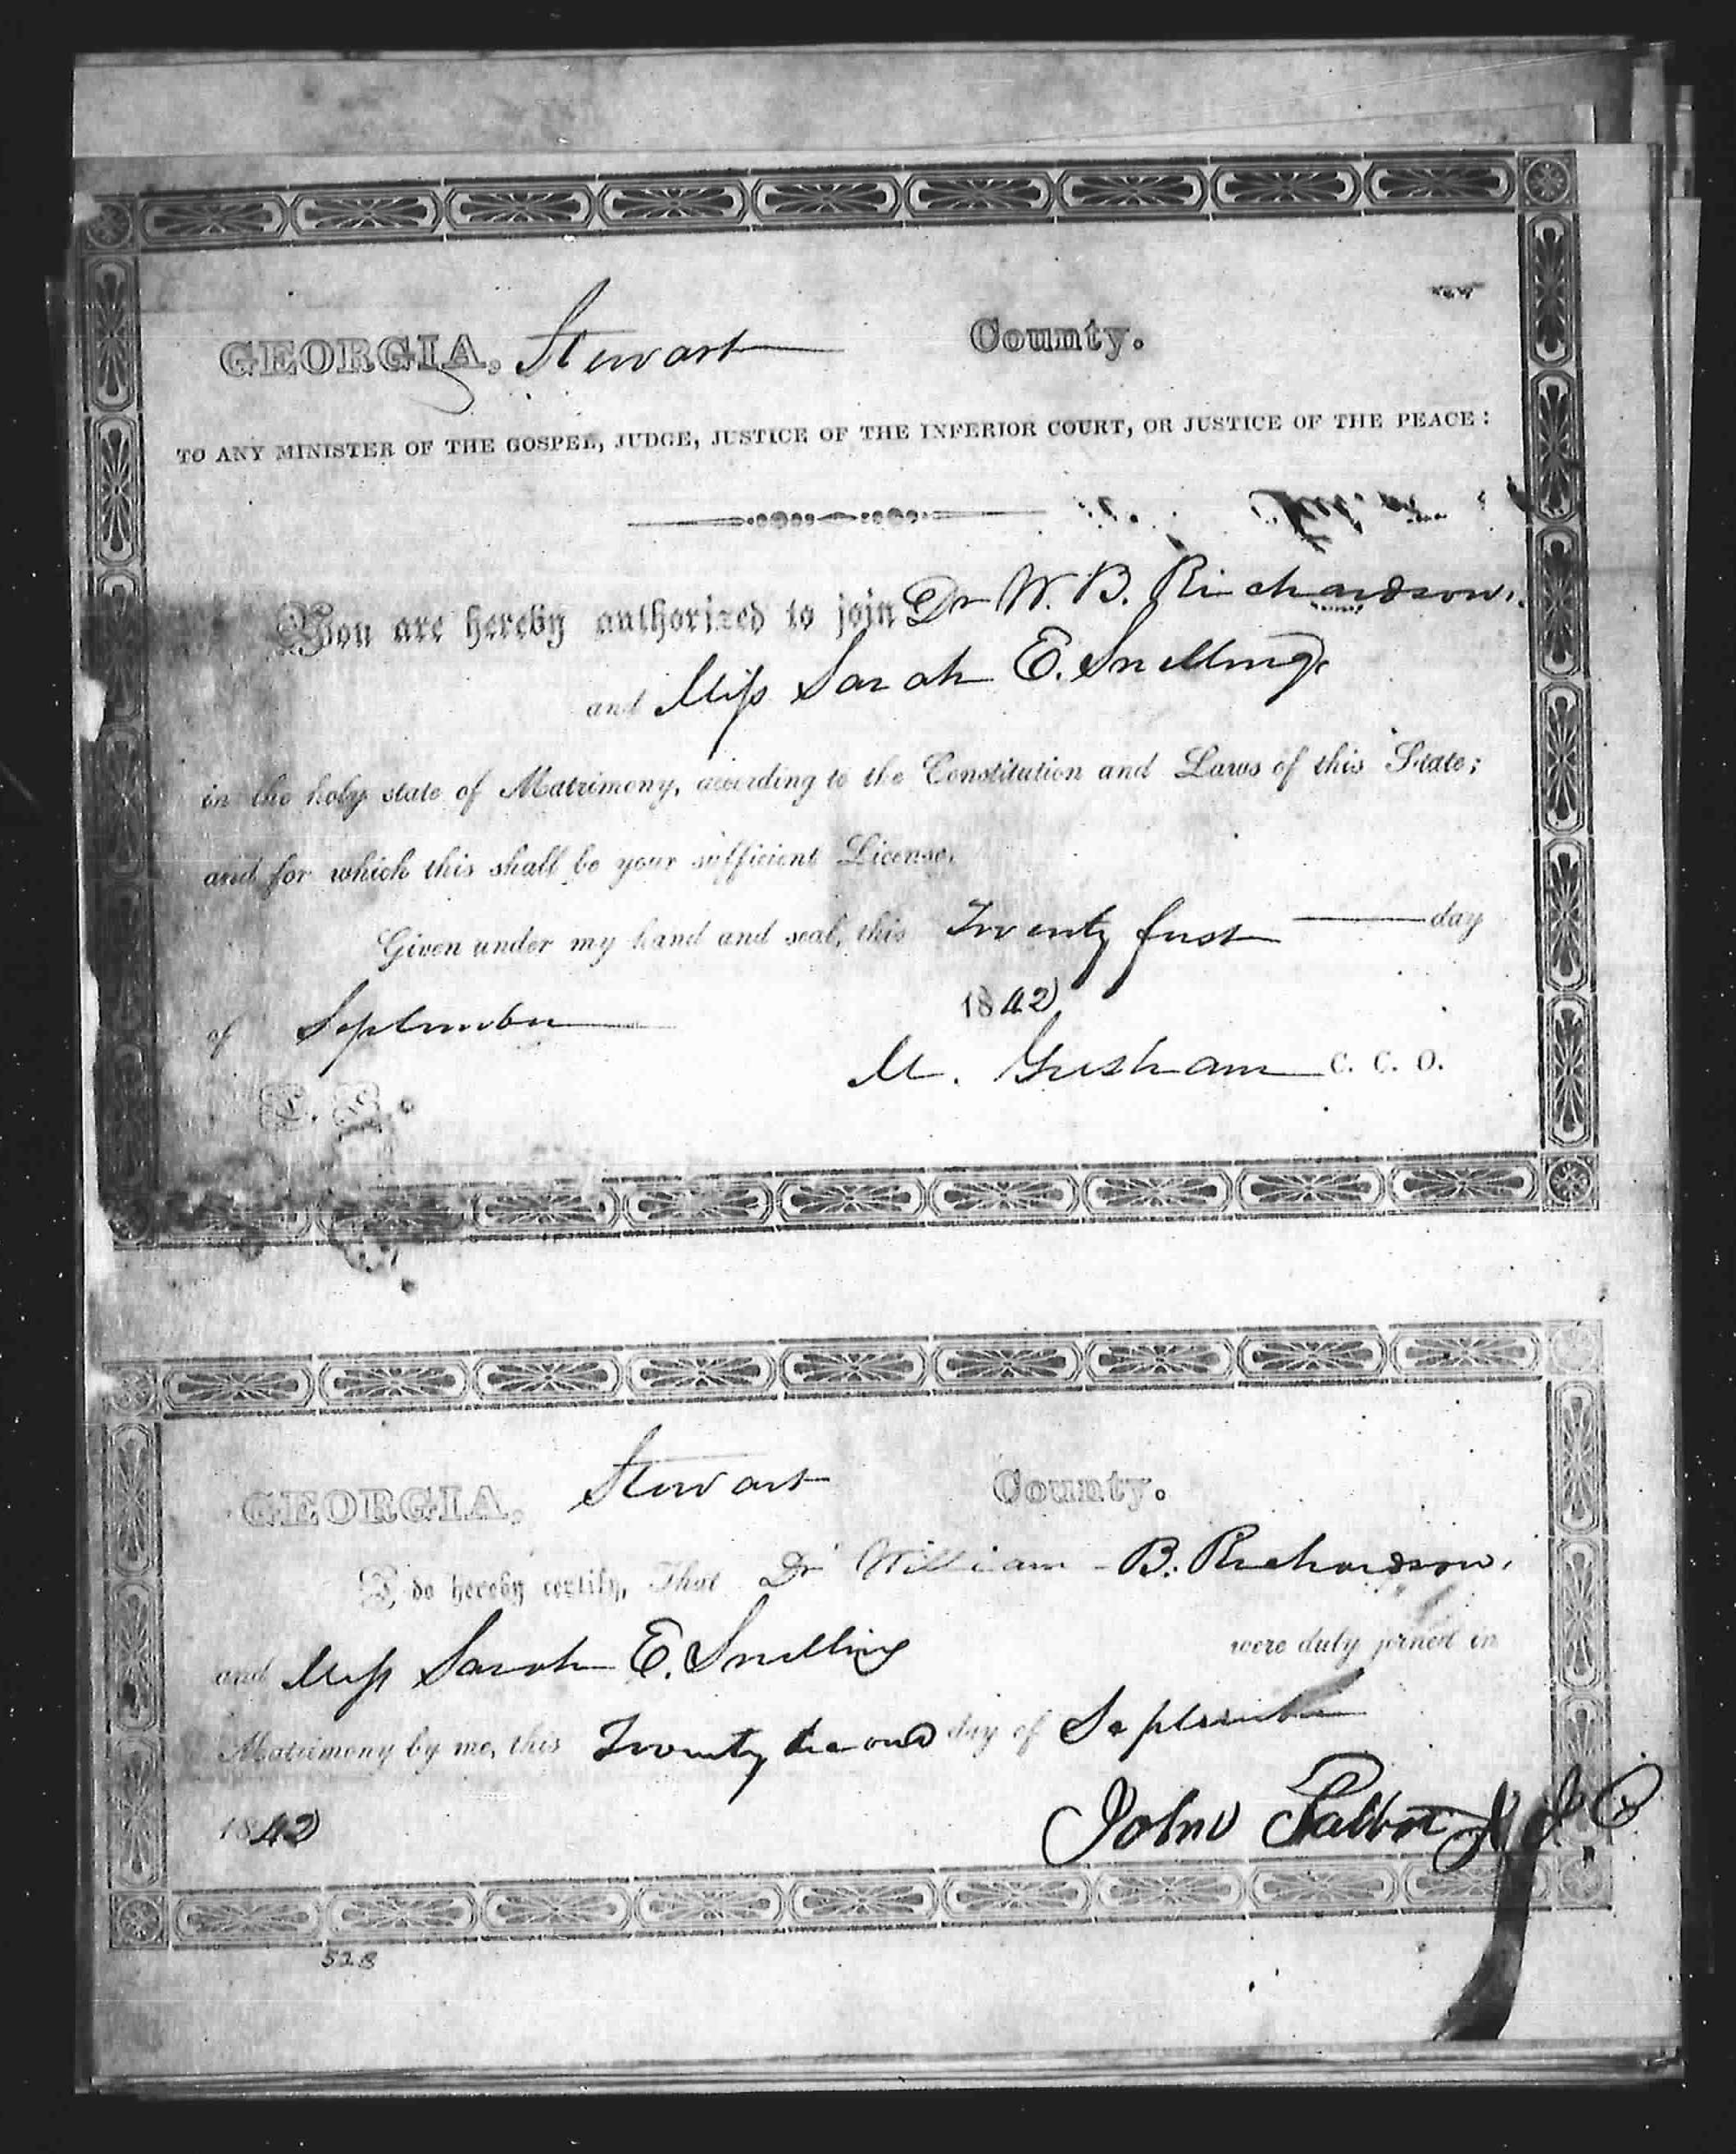 GEORGIA, Stewart County.
TO ANY MINISTER OF THE GOSPEL, JUDGE, JUSTICE OF THE INFERIOR COURT, OR JUSTICE OF THE PEACE:
You are hereby authorized to join Dr W. B. Richardson.
and Miss Sarah E. Snelling
in the holy state of Matrimony, according to the Constitution and Laws of this State;
and for which this shall be your sufficient License.
Given under my hand and seal, this Twenty first day
of September 1842
M. Gresham C. C. O.
L. S.
GEORGIA, Stewart County.
I do hereby certify, That Dr William B. Richardson,
and Miss Sarah E. Snelling were duly joined in
Matrimony by me, this Twenty Second day of September
1842 John Talbot J. I. C.
528